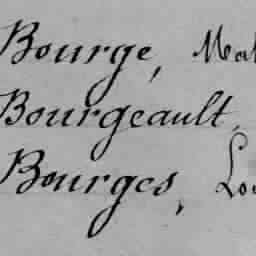 Bourge, Mat
Bourgeault,
Bourges, Lou